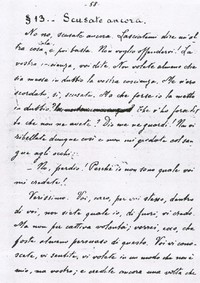 - 58 -
§ 13. - Scusate ancora.
No no, scusate ancora. Lasciatemi dire un'altra
cosa, e poi basta. Non voglio offendervi! La
vostra coscienza, voi dite. Non volete almeno che
sia messa in dubbio la vostra coscienza. Me n'ero
scordato, sì, scusate. Ma che forse io la metto
in dubbio? Che v'ho forse detto
che non ne avete? Dio me ne guardi! Ma vi
ribellate dunque così e non mi guardate col sangue
agli occhi:
- No, perdio! Perché io non sono quale voi
mi credete!
Verissimo. Voi, caro, per voi stesso, dentro
di voi, non siete quale io, di fuori, vi credo.
Ma non per cattiva volontà; vorrei, ecco, che
foste almeno persuaso di questo. Voi vi conoscete,
vi sentite, vi volete in un modo che non è
mio, ma vostro; e credete ancora una volta che